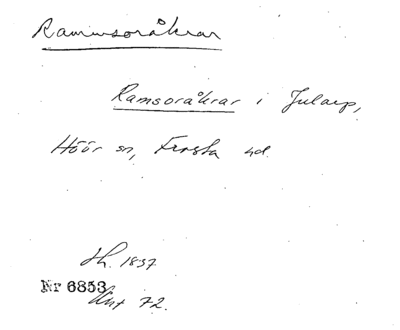 Rammsoråkrar
Ramsoråkrar i Jularp,
Höör sn, Frosta hd.
Sh. 1837
Nr 6853
Akt 72.